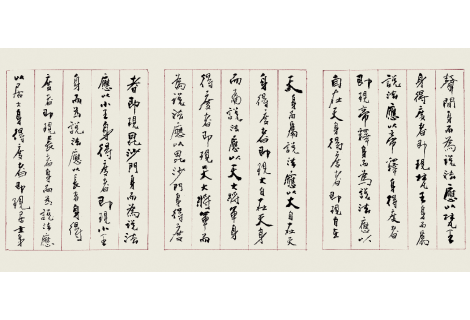 聲聞身而為說法應以梵王
身得度者即現梵王身而為
說法應以帝釋身得度者
即現帝釋身而為說法應以
自在天身得度者即現自在
天身而為說法應以大自在天
身得度者即現大自在天身
而為說法應以天大將軍身
得度者即現天大將軍而
為說法應以毘沙門身得度
者即現毘沙門身而為說法
應以小王身得度者即現小王
身而為說法應以長者身得
度者即現長者身而為說法應
以居士身得度者即現居士身